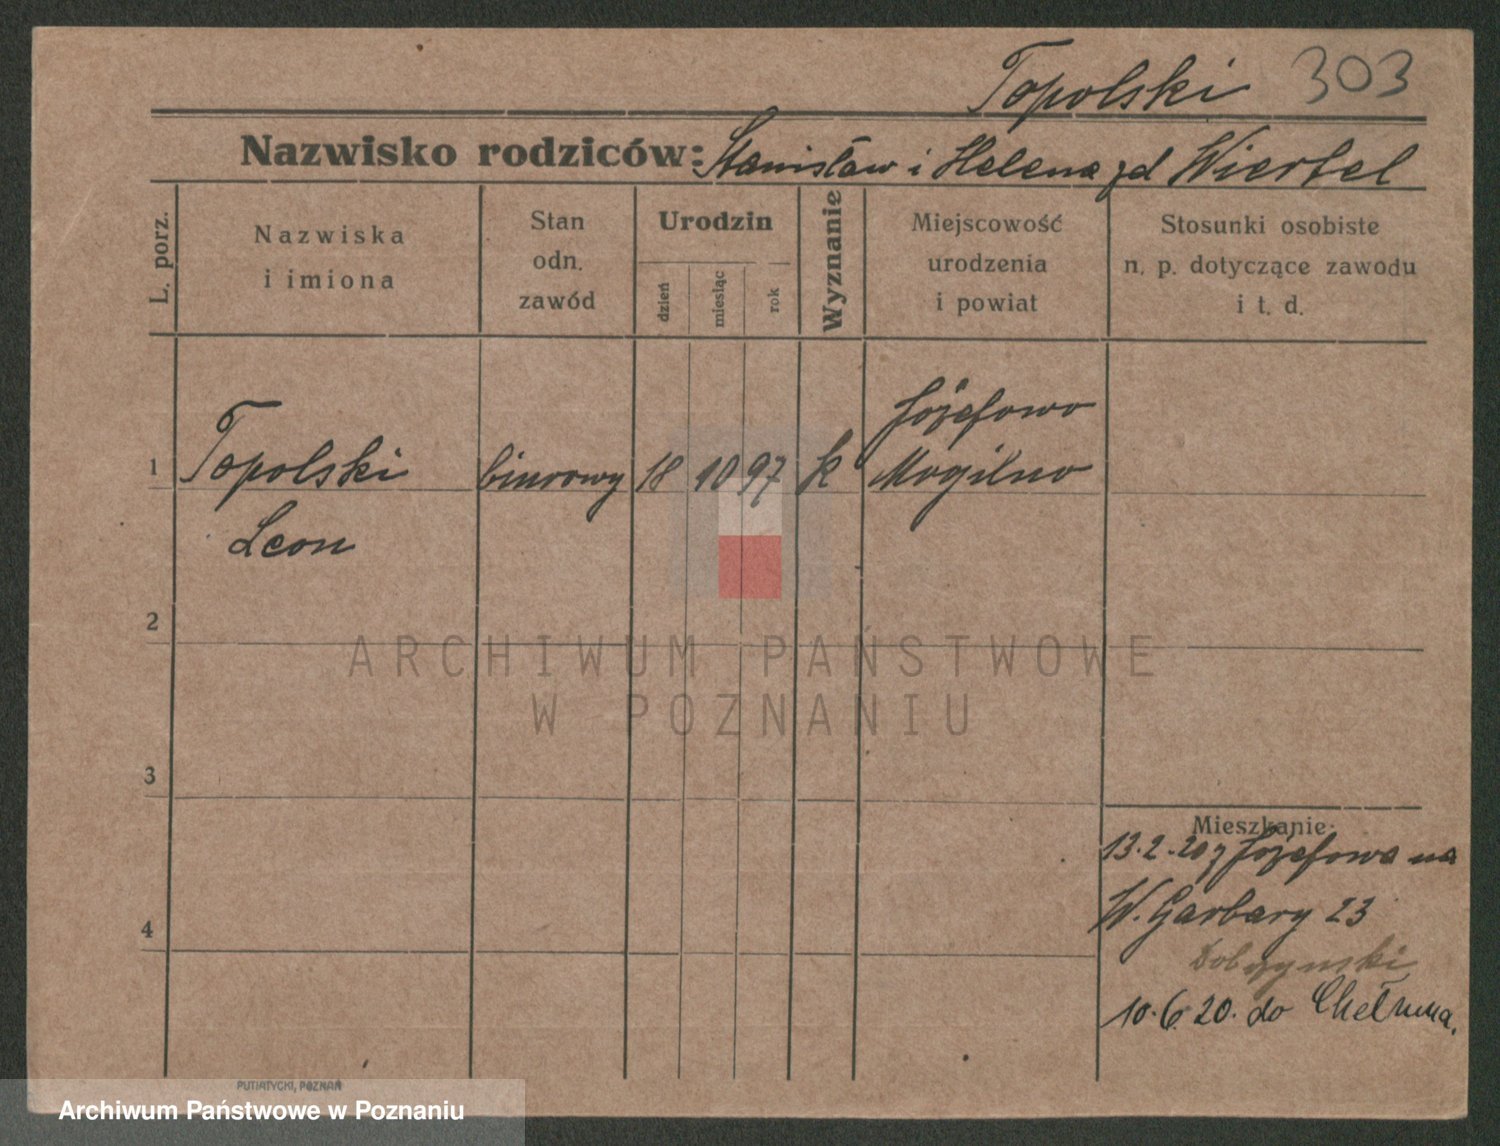 Topolski 303
Nazwisko rodziców: Stanisław i Helena zd Wiertel
L. porz.
Nazwiska
i imiona
Stan
odn.
zawód
Urodzin
dzień
miesiąc
rok
Wyznanie
Miejscowość
urodzenia
i powiat
Stosunki osobiste
n. p. dotyczące zawodu
i t. d.
Józefowo
1 Topolski biurowy 18 10 97 k Mogilno
Leon
2
ARCHIWUM PAŃSTWOWE
W POZNANIU
3
Mieszkanie:
13.2.20 z Józefowa na
W. Garbary 23
4
Dobrzynski
10.6.20. do Chełmna.
PUTIATYCKI, POZNAŃ
Archiwum Państwowe w Poznaniu